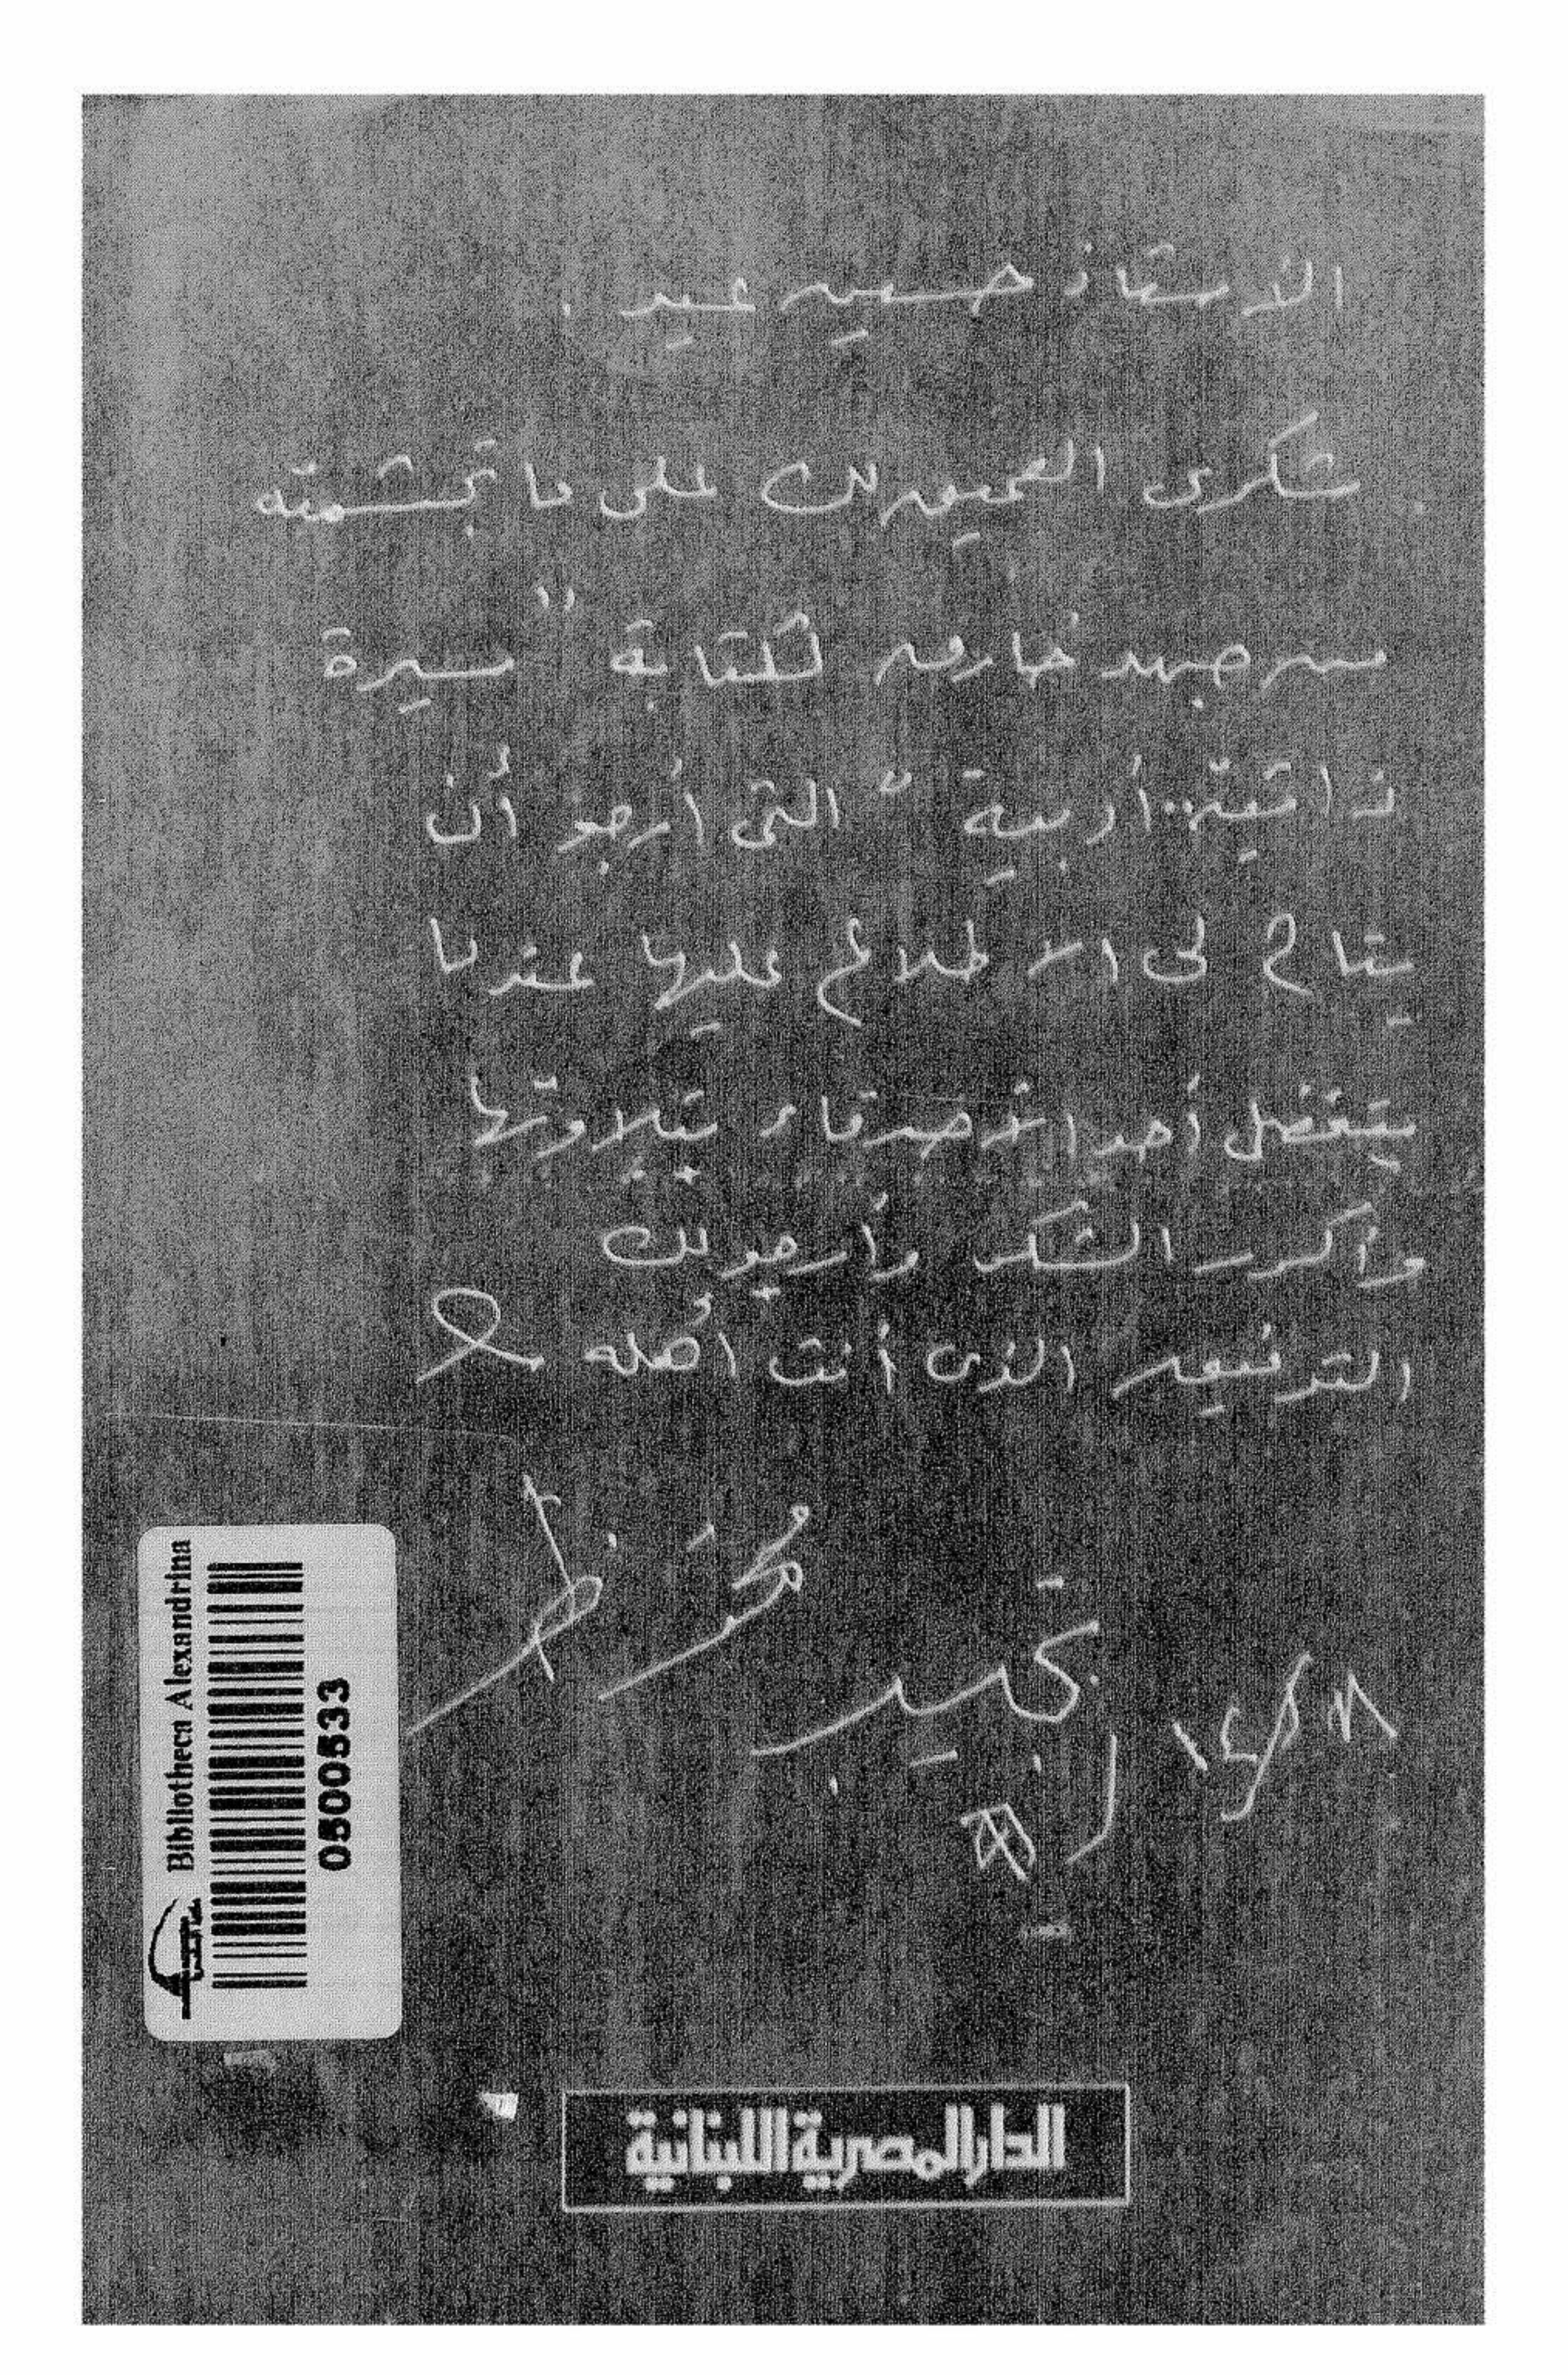 الأستاذ حسين عيد .
شكرى العميق لك على ما تجشمته
من جهد خارق لكتابة "سيرة
ذاتية.. أدبية" التى أرجو أن
يتاح لى الاطلاع عليها عندما
يتفضل أحد الأصدقاء بتلاوتها
وأكرر الشكر وأرجو لك
التوفيق الذى أنت أهله
نجيب محفوظ
Bibliotheca Alexandrina
0500533
الدار المصرية اللبنانية